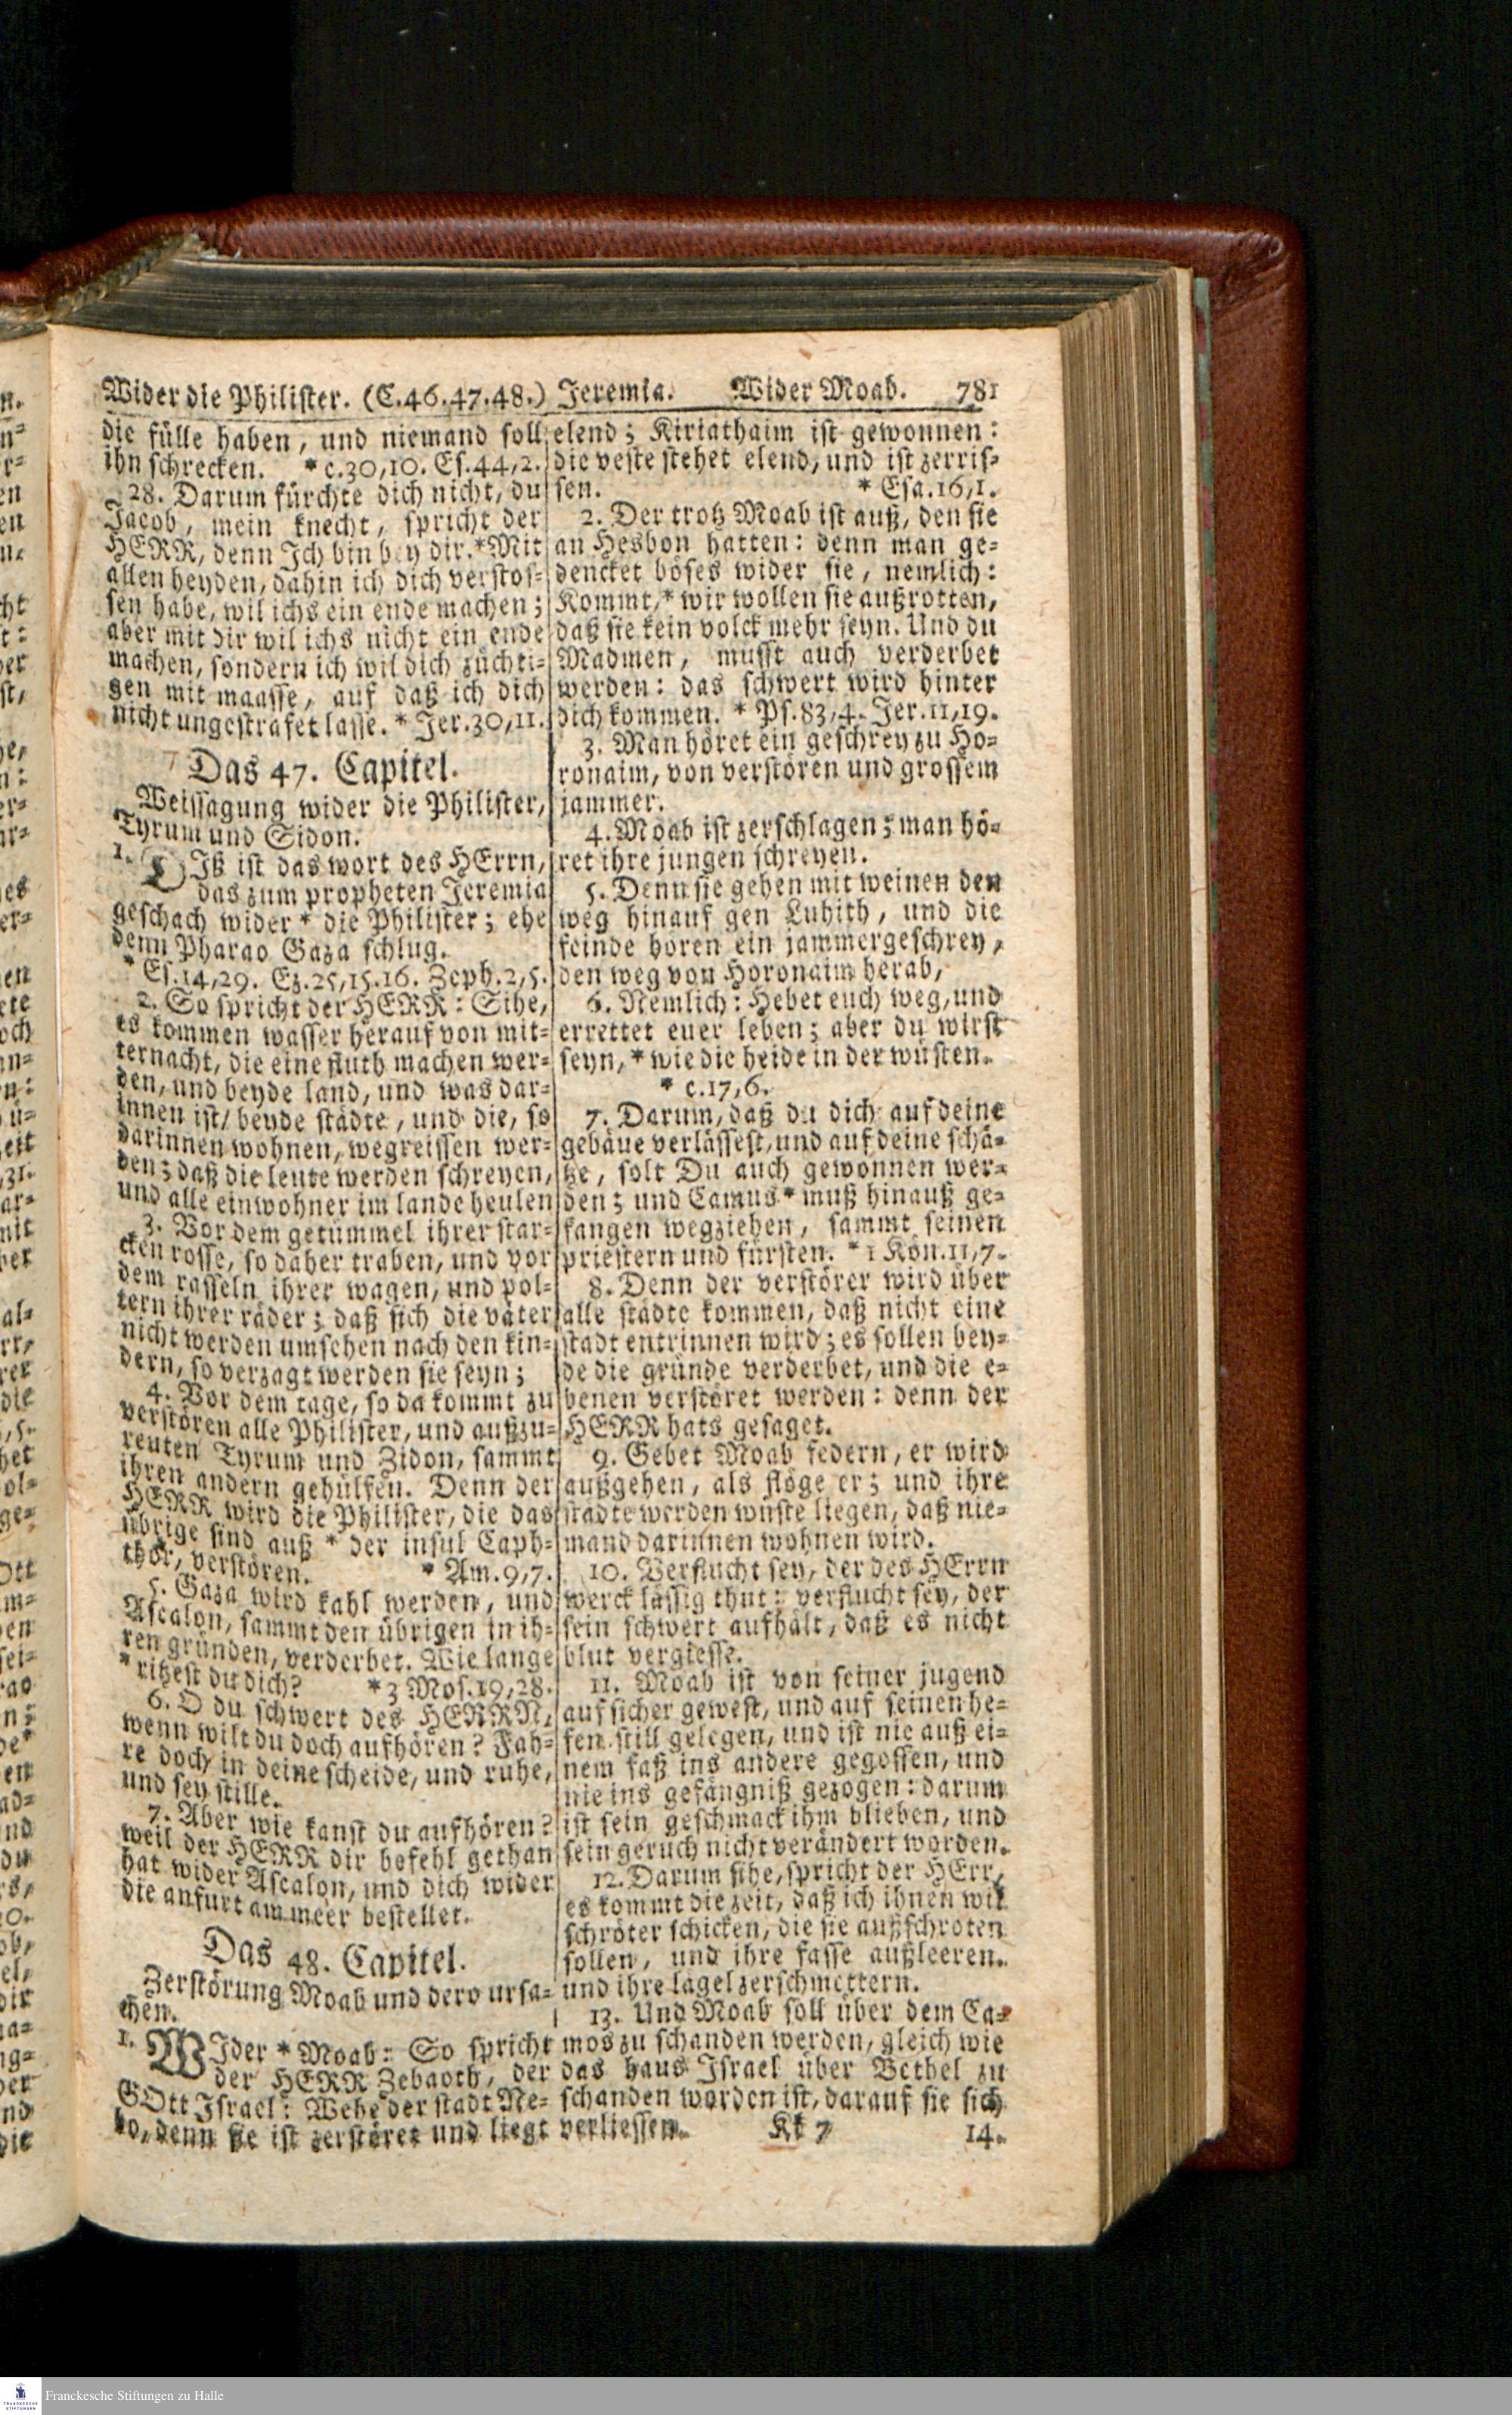 Wider die Philister. (C.46.47.48.) Jeremia. Wider Moab. 781
die fülle haben, und niemand soll
ihn schrecken. * c.30,10. Es.44,2.
28. Darum fürchte dich nicht, du
Jacob, mein knecht, spricht der
HERR, denn Ich bin bey dir.*Mit
allen heyden, dahin ich dich verstos-
sen habe, wil ichs ein ende machen;
aber mit dir wil ichs nicht ein ende
machen, sondern ich wil dich züchti-
gen mit maasse, auf daß ich dich
nicht ungestrafet lasse. * Jer.30,11.
Das 47. Capitel.
Weissagung wider die Philister,
Tyrum und Sidon.
1. DIß ist das wort des HErrn,
das zum propheten Jeremia
geschach wider * die Philister; ehe
denn Pharao Gaza schlug.
* Es.14,29. Ez.25,15.16. Zeph.2,5.
2. So spricht der HERR: Sihe,
es kommen wasser herauf von mit-
ternacht, die eine fluth machen wer-
den, und beyde land, und was dar-
innen ist/ beyde städte, und die, so
darinnen wohnen, wegreissen wer-
den; daß die leute werden schreyen,
und alle einwohner im lande heulen
3. Vor dem getümmel ihrer star-
cken rosse, so daher traben, und vor
dem rasseln ihrer wagen, und pol-
tern ihrer räder; daß sich die väter
nicht werden umsehen nach den kin-
dern, so verzagt werden sie seyn;
4. Vor dem tage, so da kommt zu
verstören alle Philister, und außzu-
reuten Tyrum und Zidon, sammt
ihren andern gehülfen. Denn der
HERR wird die Philister, die das
übrige sind auß * der insul Caph-
thor, verstören. * Am.9,7.
5. Gaza wird kahl werden, und
Ascalon, sammt den übrigen in ih-
ren gründen, verderbet. Wie lange
* ritzest du dich? *3 Mos.19,28.
6. O du schwert des HERRN,
wenn wilt du doch aufhören? Fah-
re doch in deine scheide, und ruhe,
und sey stille.
7. Aber wie kanst du aufhören?
weil der HERR dir befehl gethan
hat wider Ascalon, und dich wider
die anfurt am meer bestellet.
Das 48. Capitel.
Zerstörung Moab und dero ursa-
chen.
1. WIder * Moab: So spricht
der HERR Zebaoth, der
GOtt Israel: Wehe der stadt Ne-
bo, denn sie ist zerstöret und liegt
elend; Kiriathaim ist gewonnen:
die veste stehet elend, und ist zerris-
sen. * Esa.16,1.
2. Der trotz Moab ist auß, den sie
an Hesbon hatten: denn man ge-
dencket böses wider sie, nemlich:
Kommt,* wir wollen sie außrotten,
daß sie kein volck mehr seyn. Und du
Madmen, musst auch verderbet
werden: das schwert wird hinter
dich kommen. * Ps.83,4. Jer.11,19.
3. Man höret ein geschrey zu Ho-
ronaim, von verstören und grossem
jammer.
4. Moab ist zerschlagen; man hö-
ret ihre jungen schreyen.
5. Denn sie gehen mit weinen den
weg hinauf gen Luhith, und die
feinde hören ein jammergeschrey,
den weg von Horonaim herab,
6. Nemlich: Hebet euch weg, und
errettet euer leben; aber du wirst
seyn, * wie die heide in der wüsten.
* c.17,6.
7. Darum, daß du dich auf deine
gebäue verlässest, und auf deine schä-
tze, solt Du auch gewonnen wer-
den; und Camus * muß hinauß ge-
fangen wegziehen, sammt seinen
priestern und fürsten. * 1 Kön.11,7.
8. Denn der verstörer wird über
alle städte kommen, daß nicht eine
stadt entrinnen wird; es sollen bey-
de die gründe verderbet, und die e-
benen verstöret werden: denn der
HERR hats gesaget.
9. Gebet Moab federn, er wird
außgehen, als flöge er; und ihre
städte werden wüste liegen, daß nie-
mand darinnen wohnen wird.
10. Verflucht sey, der des HErrn
werck lässig thut: verflucht sey, der
sein schwert aufhält, daß es nicht
blut vergiesse.
11. Moab ist von seiner jugend
auf sicher gewest, und auf seinen he-
fen still gelegen, und ist nie auß ei-
nem faß ins andere gegossen, und
nie ins gefängniß gezogen: darum
ist sein geschmack ihm blieben, und
sein geruch nicht verändert worden.
12. Darum sihe, spricht der HErr,
es kommt die zeit, daß ich ihnen wil
schröter schicken, die sie außschroten
sollen, und ihre fasse außleeren.
und ihre lägel zerschmettern.
13. Und Moab soll über dem Ca-
mos zu schanden werden, gleich wie
das haus Israel über Bethel zu
schanden worden ist, darauf sie sich
verliessen. Kk 7 14.
Franckesche Stiftungen zu Halle